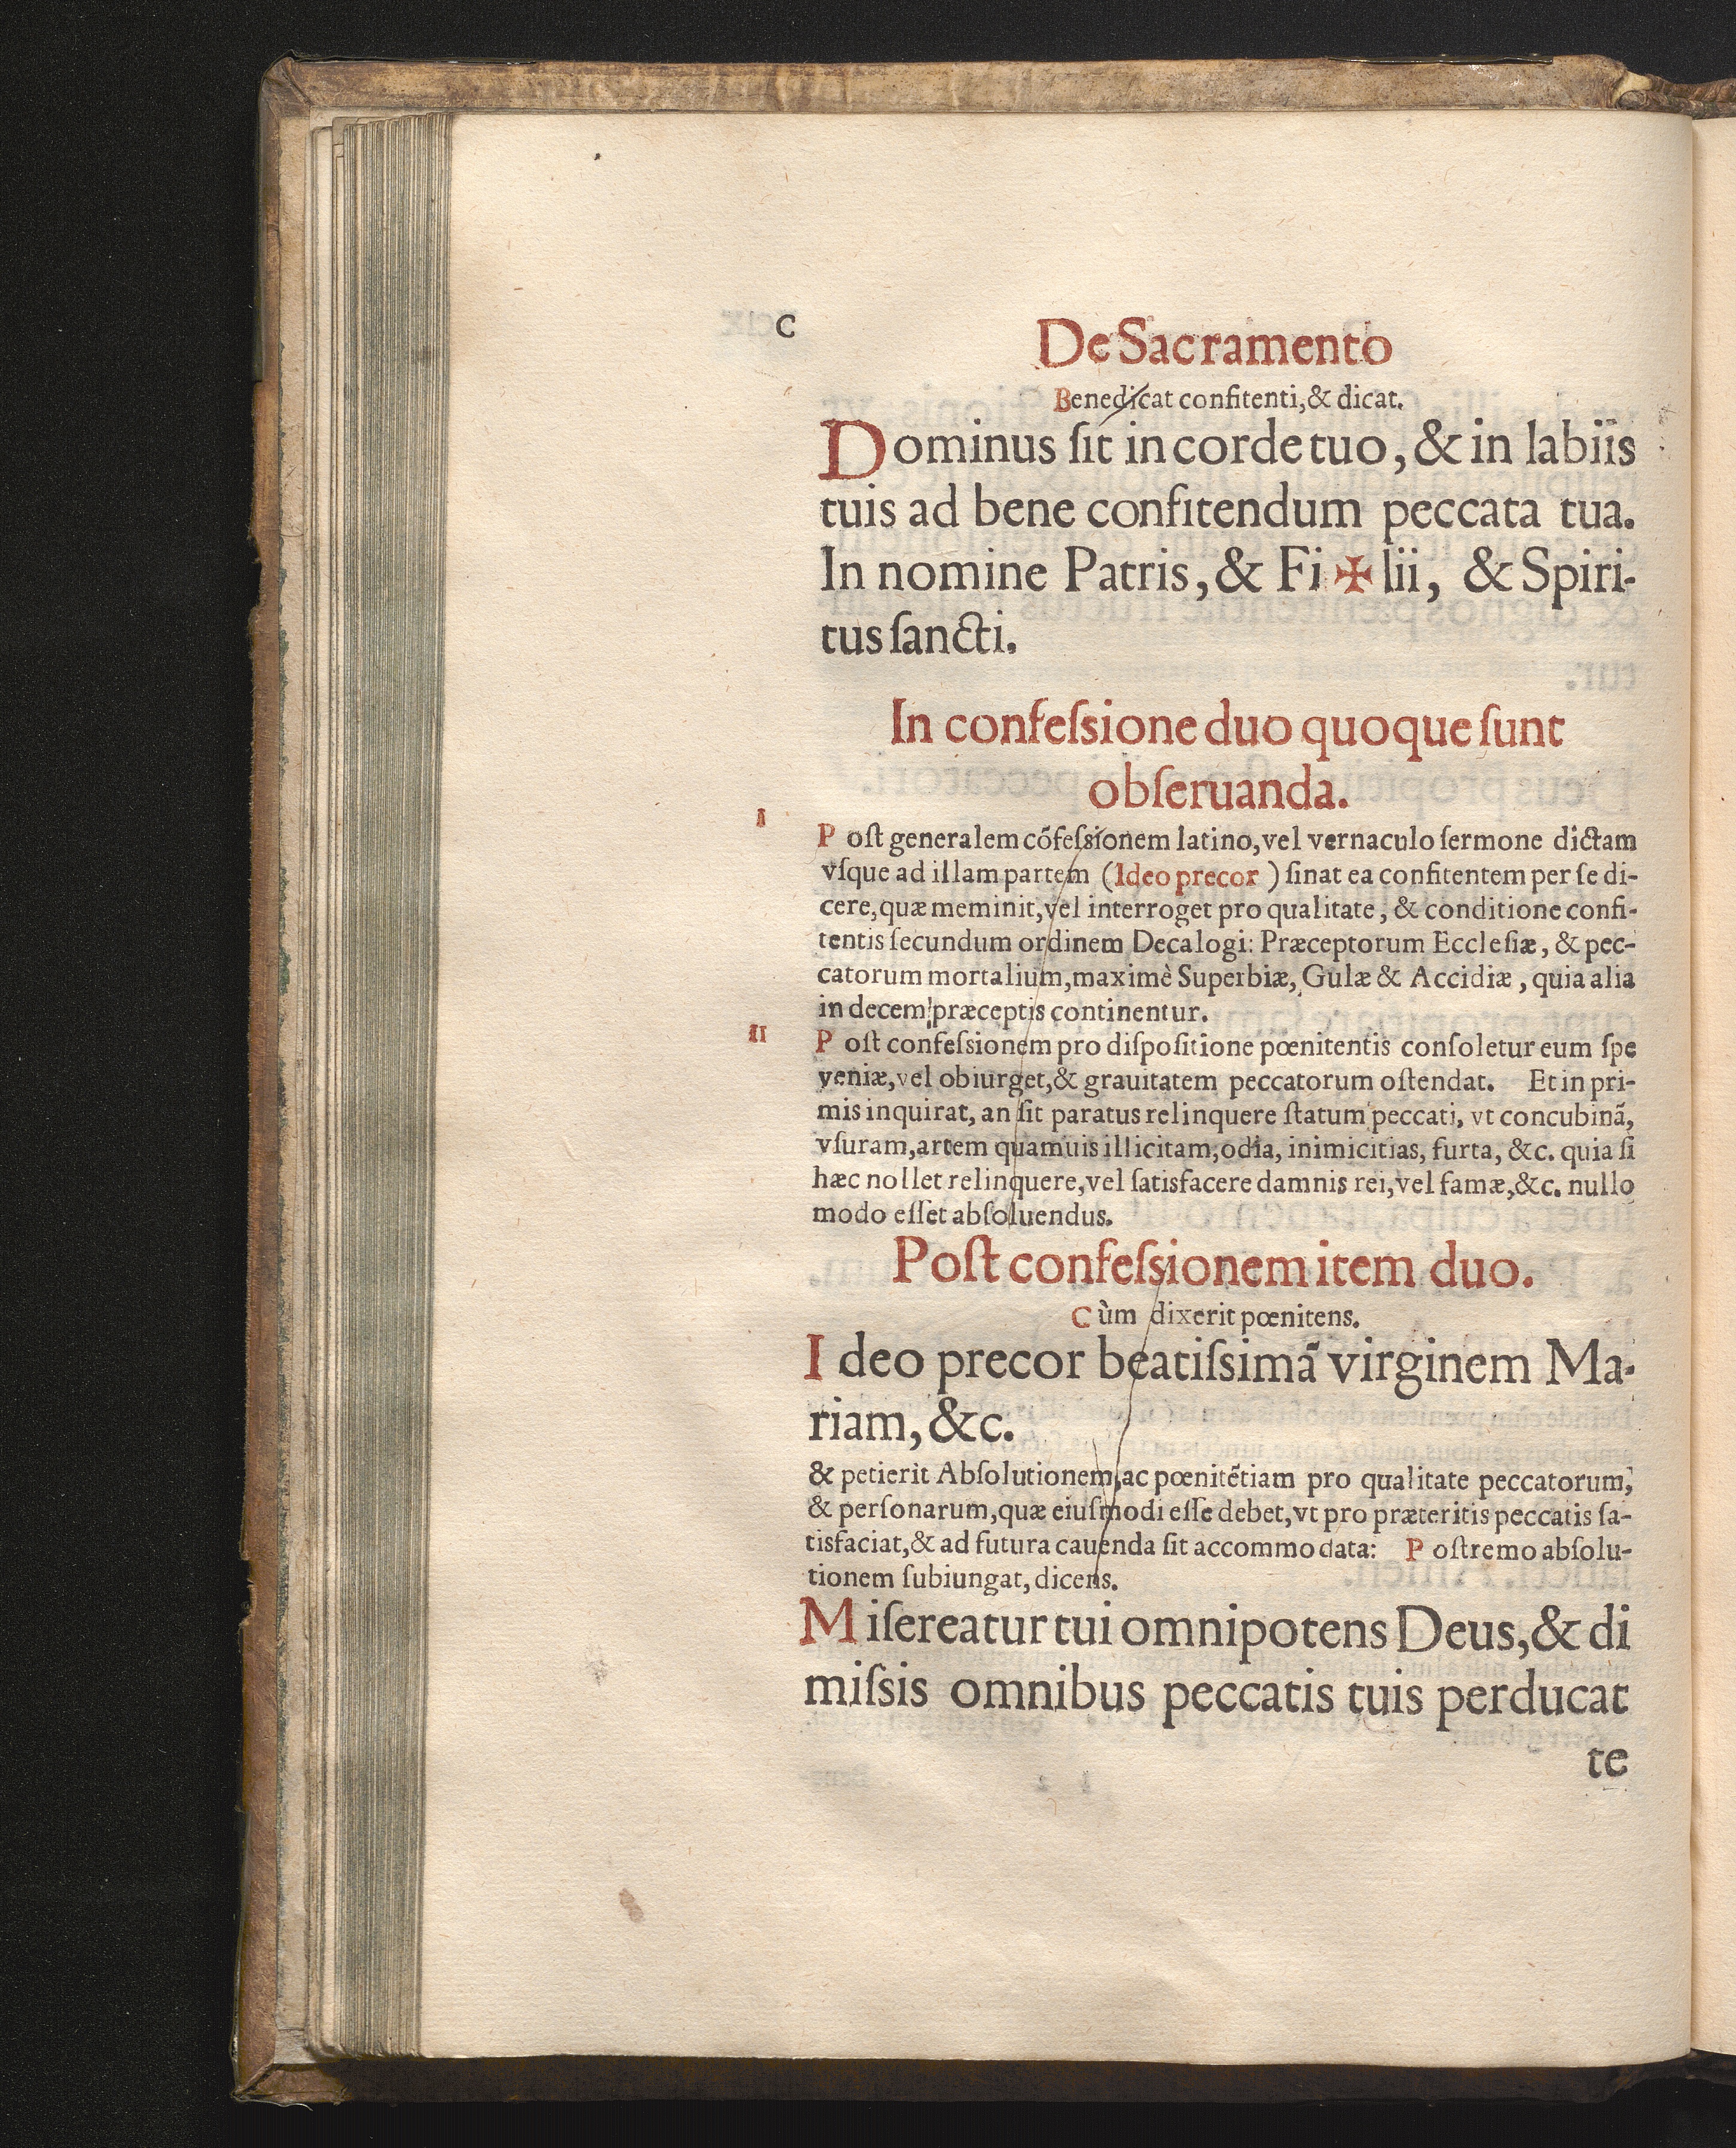 C
De Sacramento
Benedicat confitenti, & dicat.
Dominus ſit in corde tuo, & in labiis
tuis ad bene confitendum peccata tua.
In nomine Patris, & Fi ✠ lii, & Spiri-
tus ſancti.
In confeſsione duo quoque ſunt
obſeruanda.
I
Poſt generalem cōfeſsionem latino, vel vernaculo ſermone dictam
vſque ad illam partem (Ideo precor) ſinat ea confitentem per ſe di-
cere, quæ meminit, vel interroget pro qualitate, & conditione confi-
tentis ſecundum ordinem Decalogi: Præceptorum Eccleſiæ, & pec-
catorum mortalium, maximè Superbiæ, Gulæ & Accidiæ, quia alia
in decem præceptis continentur.
II
Poſt confeſsionem pro diſpoſitione pœnitentis conſoletur eum ſpe
veniæ, vel obiurget, & grauitatem peccatorum oſtendat. Et in pri-
mis inquirat, an ſit paratus relinquere ſtatum peccati, vt concubinā,
vſuram, artem quamuis illicitam, odia, inimicitias, furta, &c. quia ſi
hæc nollet relinquere, vel ſatisfacere damnis rei, vel famæ, &c. nullo
modo eſſet abſoluendus.
Poſt confeſsionem item duo.
Cùm dixerit pœnitens.
Ideo precor beatiſsimā virginem Ma-
riam, &c.
& petierit Abſolutionem, ac pœnitētiam pro qualitate peccatorum,
& perſonarum, quæ eiuſmodi eſſe debet, vt pro præteritis peccatis ſa-
tisfaciat, & ad futura cauenda ſit accommodata: Poſtremo abſolu-
tionem ſubiungat, dicens.
Miſereatur tui omnipotens Deus, & di
miſsis omnibus peccatis tuis perducat
te